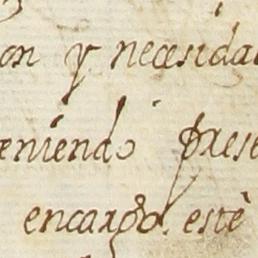 on y necesida
eniendo prese
encargo. estè